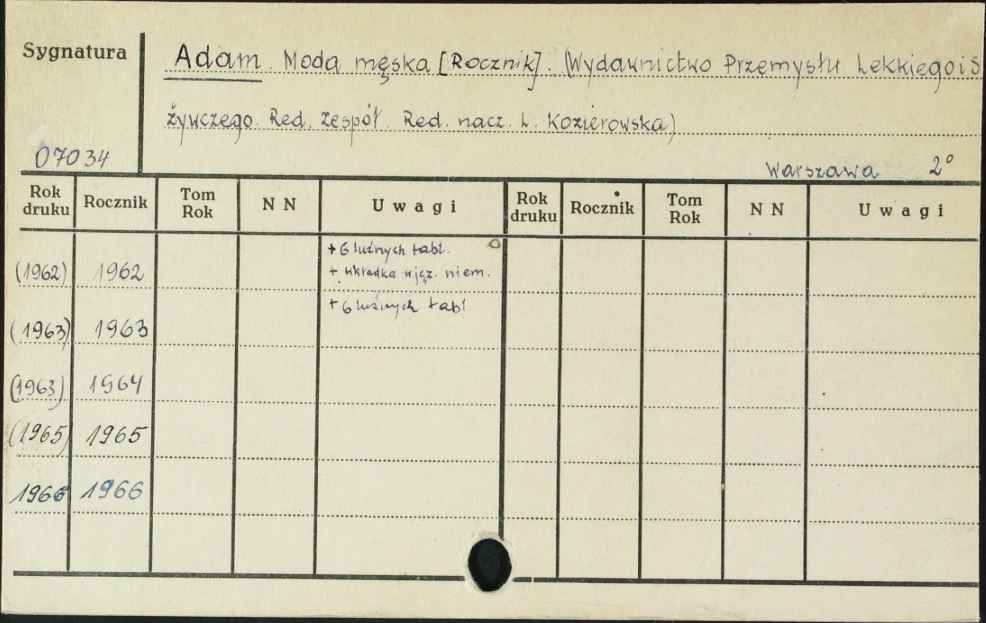 Sygnatura
Adam. Moda męska [Rocznik]. (Wydawnictwo Przemysłu Lekkiego i S
żywczego. Red. zespół. Red. nacz. L. Kozierowska)
07034
Warszawa 2°
Rok druku Rocznik Tom Rok NN Uwagi Rok druku Rocznik Tom Rok NN Uwagi
+ 6 luźnych tabl.
(1962) 1962 + wkładka w jęz. niem.
+ 6 luźnych tabl
(1963) 1963
(1963) 1964
(1965) 1965
1966 1966